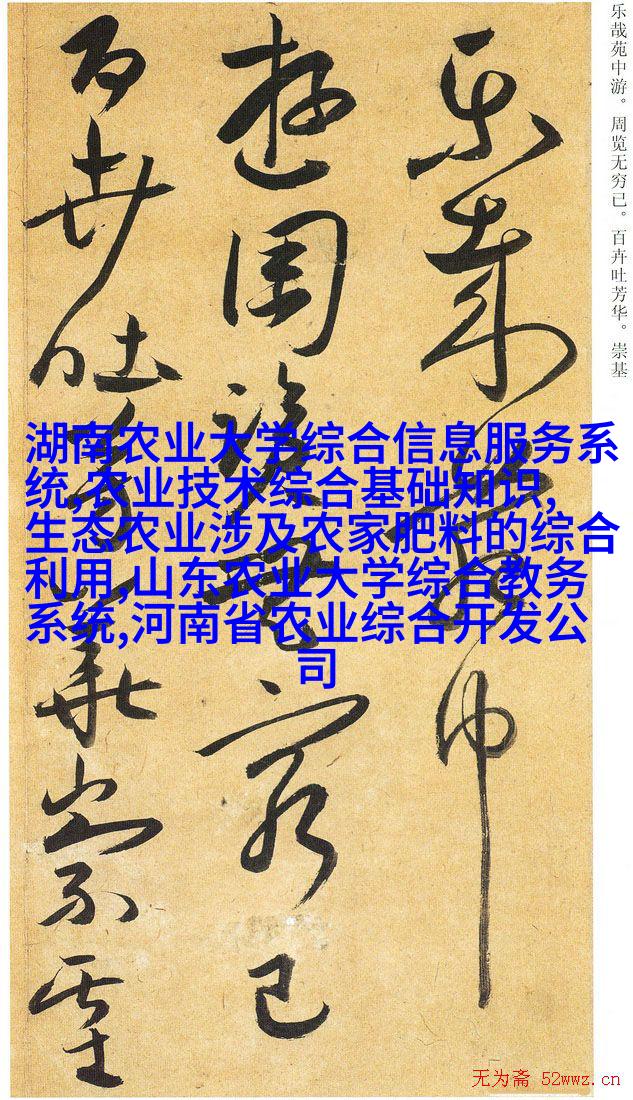 乐哉苑中游。周览无穷已。百卉吐芳华。崇基
樂哉苑中
遊周覽無窮已
百卉吐芳華崇基
湖南农业大学综合信息服务系
统,农业技术综合基础知识,
生态农业涉及农家肥料的综合
利用,山东农业大学综合教务
系统,河南省农业综合开发公
司
无为斋 52wwz.cn